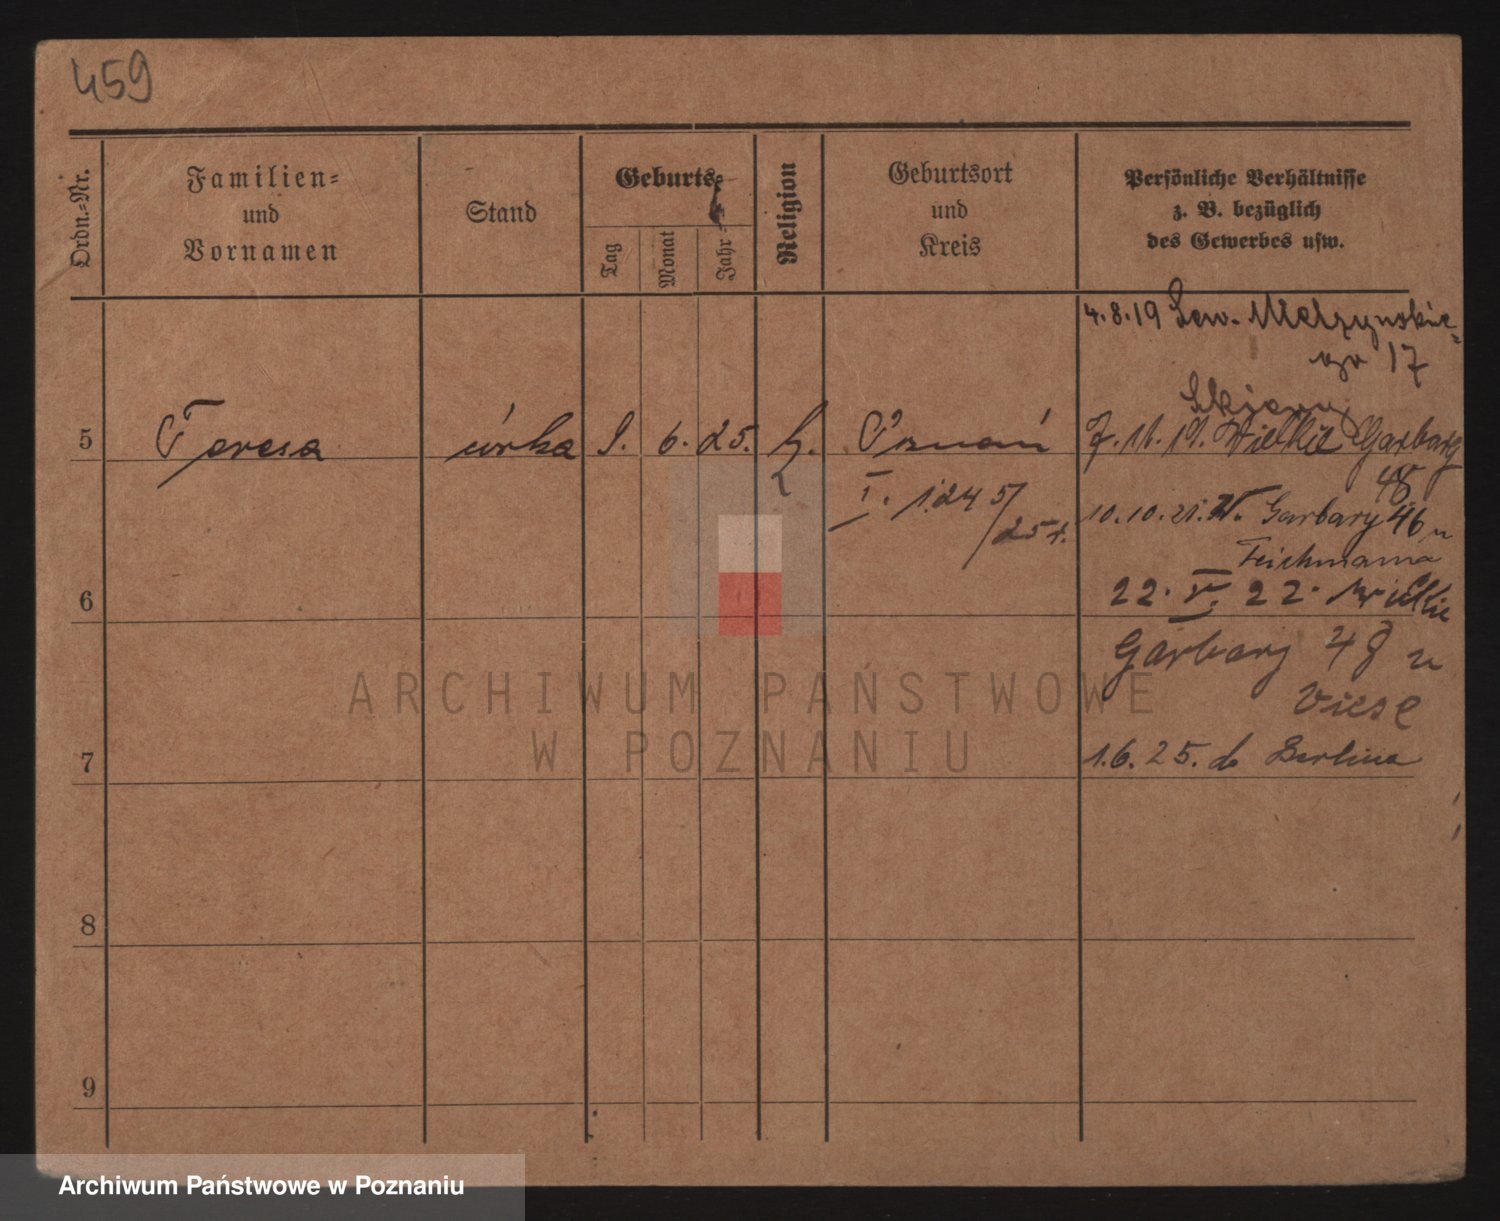 459
Ordn.=Nr.
Familien=
und
Vornamen
Stand
Geburts=
Tag
Monat
Jahr
Religion
Geburtsort
und
Kreis
Persönliche Verhältnisse
z. B. bezüglich
des Gewerbes usw.
4.8.19 Sew. Mielżyńskie=
go 17
5 Teresa córka 6. 25. Poznań
7.11.19. Wielkie Garbary
48
I. 1245/25
10.10.21. W. Garbary 46 u
Teichmanna
6
22. V. 22. Wielkie
Garbary 48 u
Viese
7
1.6.25. do Berlina
8
9
ARCHIWUM PAŃSTWOWE
W POZNANIU
Archiwum Państwowe w Poznaniu